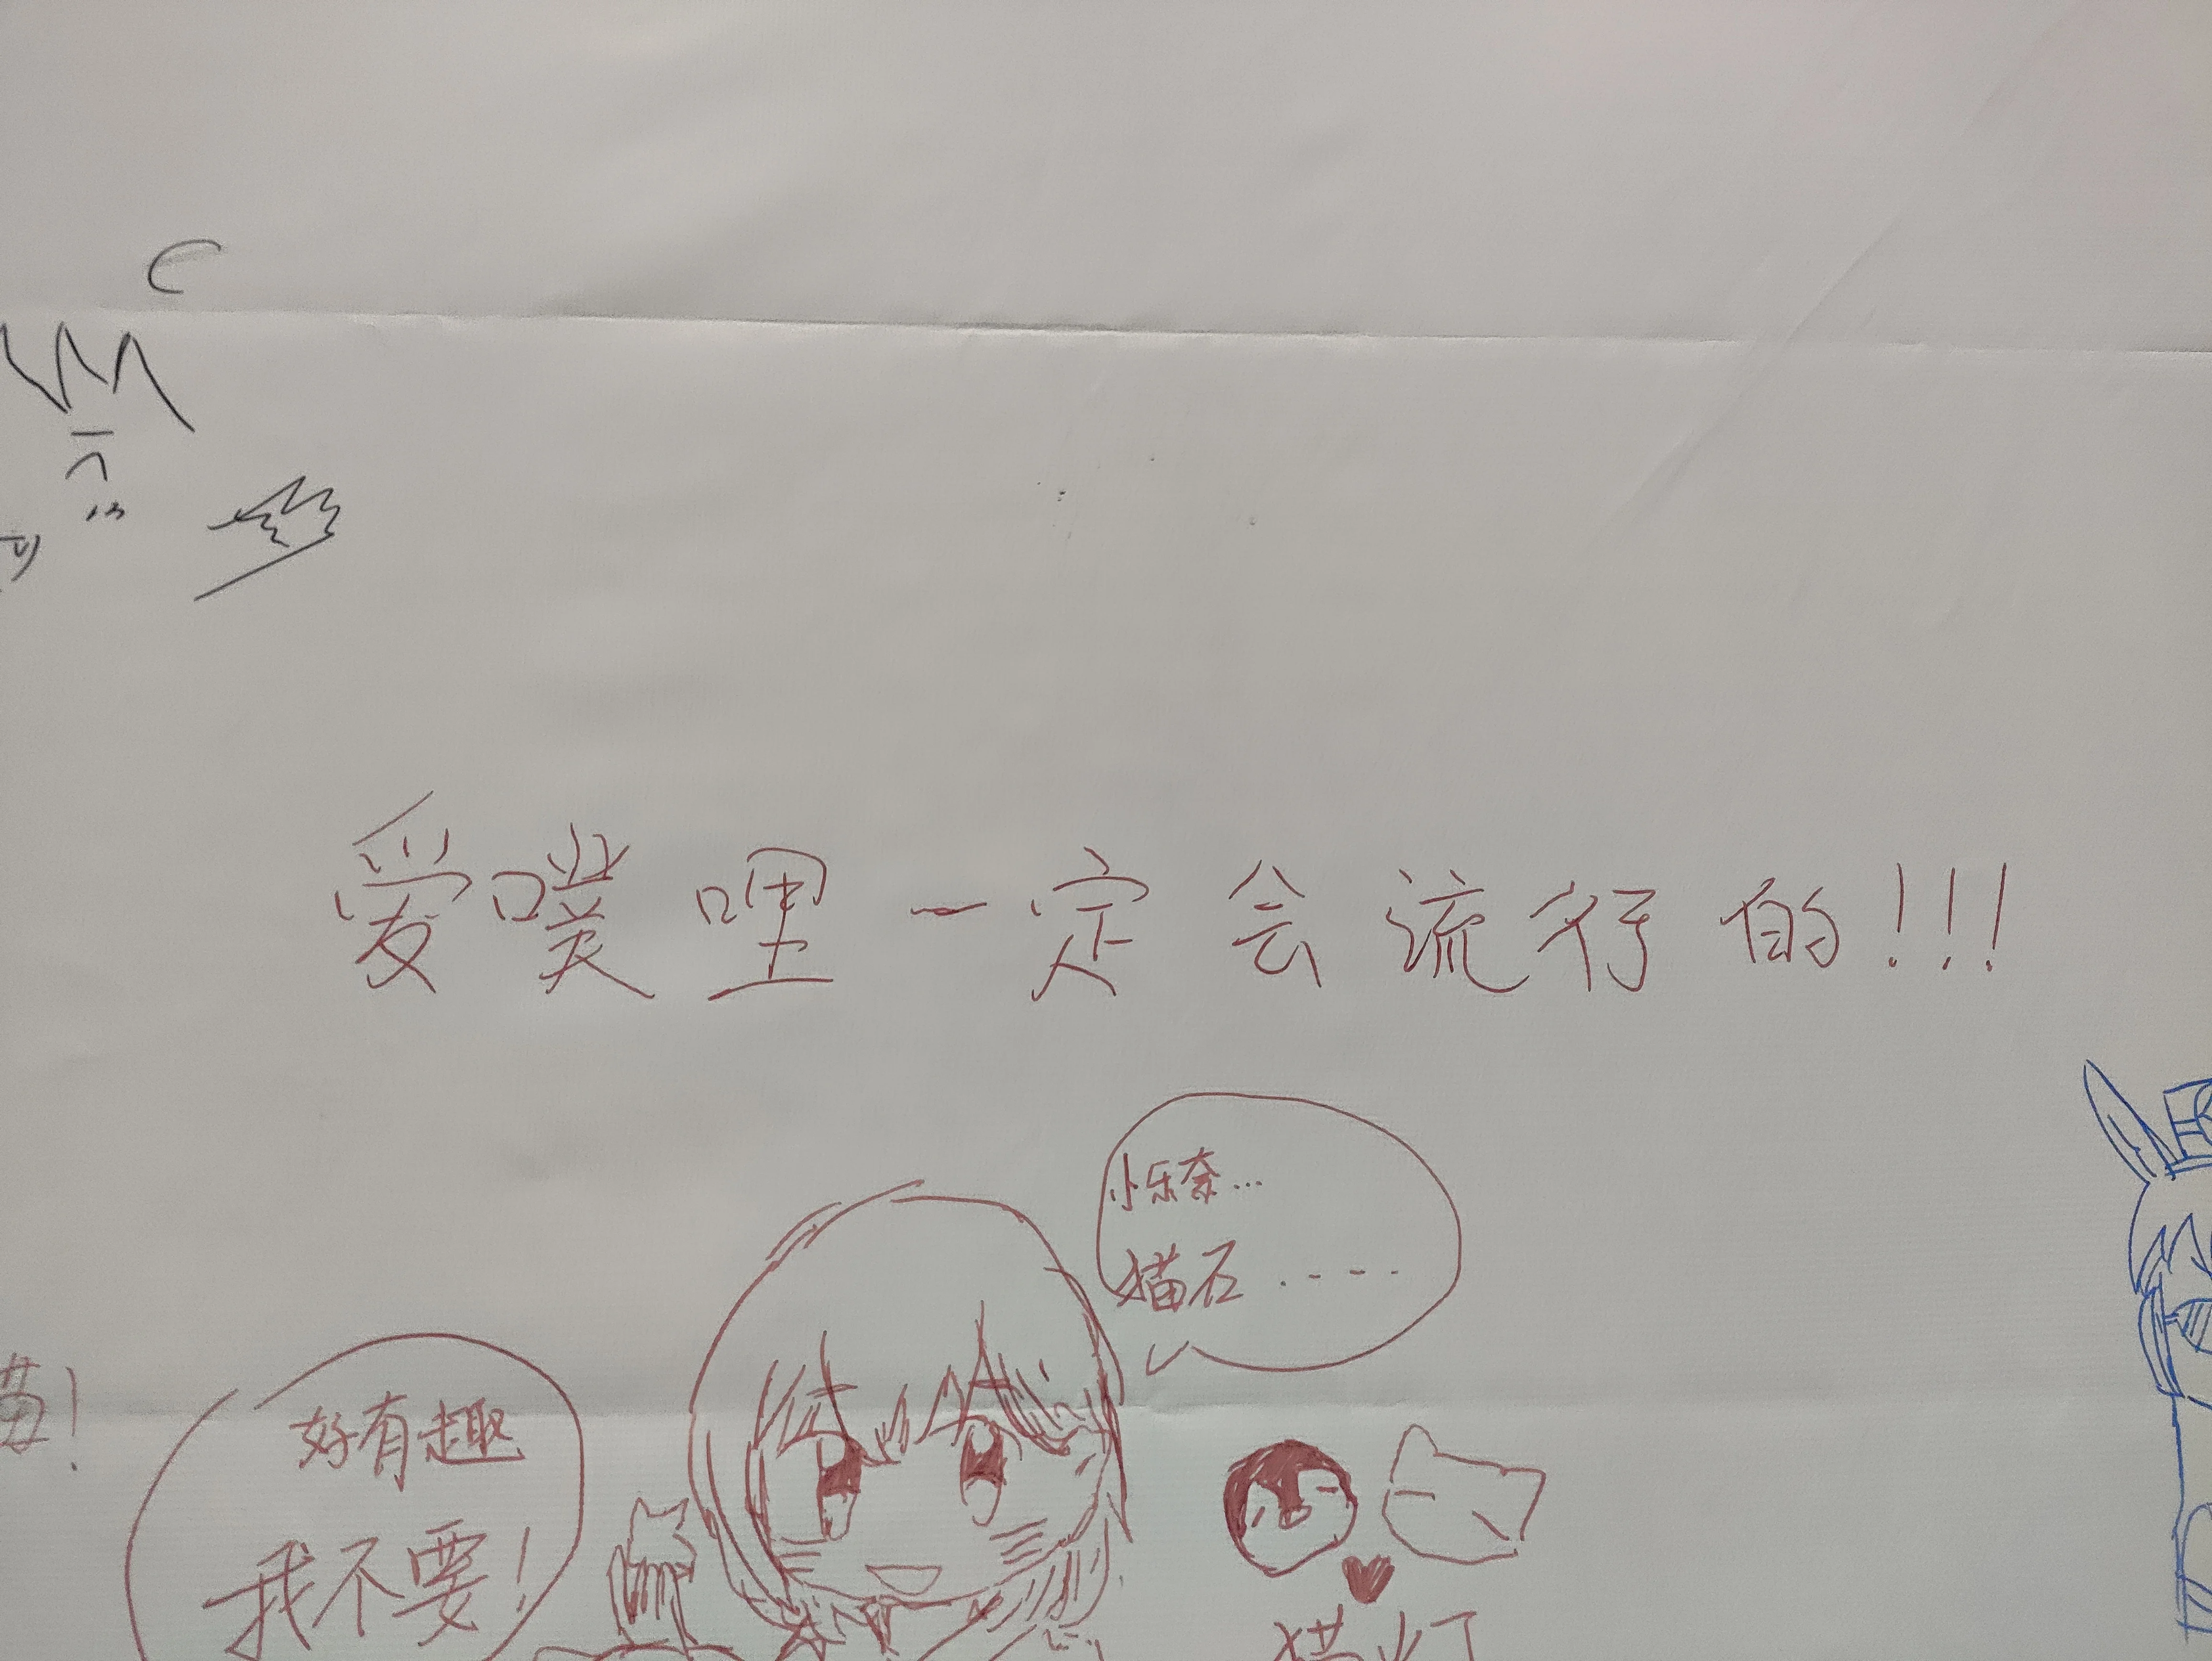 爱噗哩一定会流行的!!!
小乐奈…
猫石.----
好有趣
我不要!
猫灯